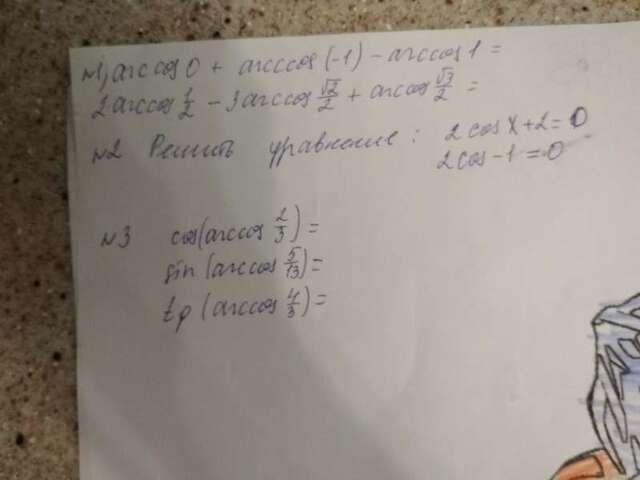 №1, arccos 0 + arcccos (-1) - arccos 1 =
2 arccos 1/2 - 3 arccos √2/2 + arcos √3/2 =
№2 Решить уравнение: 2 cos x + 2 = 0
2 cos - 1 = 0
№3 cos (arccos 2/3) =
sin (arccos 5/13) =
tg (arccos 4/3) =